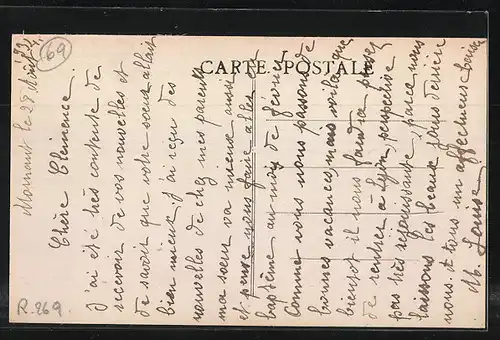 69
CARTE POSTALE
Mornant le 28 Août
Chère Clémence.
J'ai été très contente de
recevoir de vos nouvelles et
de savoir que votre sœur allait
bien mieux, j'ai reçu des
nouvelles de chez mes parents
ma sœur va mieux aussi
et pense nous faire aller au
baptême au mois de
Comme nous nous passons de
bonnes vacances, mais voilà que
bientôt il nous faudra penser
de rentrer à Lyon, perspective
pas très réjouissante, parce nous
laissons les beaux jours derrière
nous. A tous un affectueux baiser
M. Louise
R.269